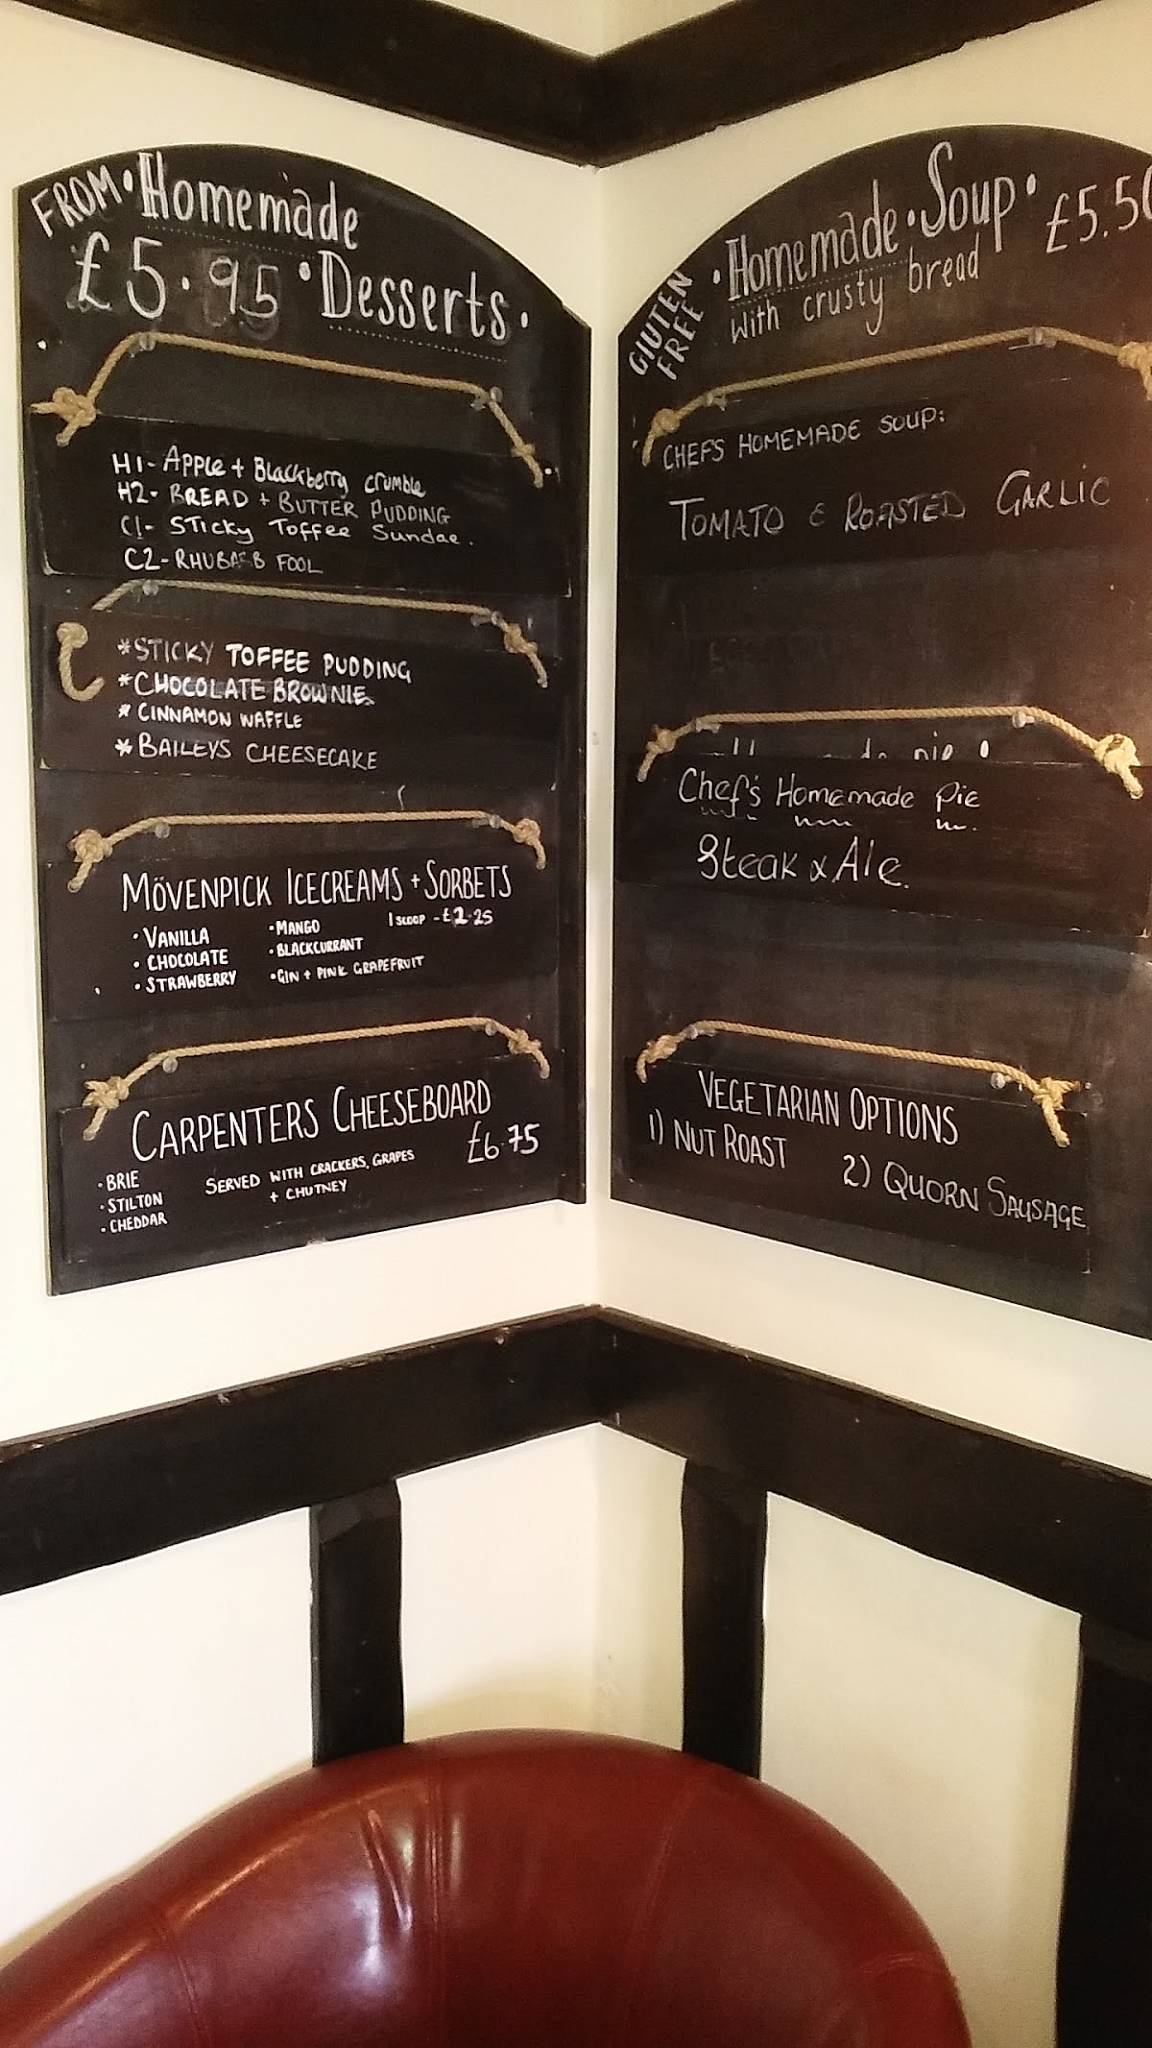 FROM • Homemade
£5.95 • Desserts •
H1- Apple + Blackberry crumble
H2- BREAD + BUTTER PUDDING
C1- Sticky Toffee Sundae.
C2- RHUBARB FOOL
*STICKY TOFFEE PUDDING
*CHOCOLATE BROWNIE
* CINNAMON WAFFLE
*BAILEYS CHEESECAKE
MÖVENPICK ICECREAMS + SORBETS
1 SCOOP - £2.25
• VANILLA
• CHOCOLATE
• STRAWBERRY
• MANGO
• BLACKCURRANT
• GIN + PINK GRAPEFRUIT
CARPENTERS CHEESEBOARD
£6.75
• BRIE
• STILTON
• CHEDDAR
SERVED WITH CRACKERS, GRAPES
+ CHUTNEY
GLUTEN
FREE
• Homemade • Soup • £5.50
with crusty bread
CHEFS HOMEMADE SOUP:
TOMATO & ROASTED GARLIC
Chef's Homemade Pie
Steak & Ale.
VEGETARIAN OPTIONS
1) NUT ROAST
2) QUORN SAUSAGE